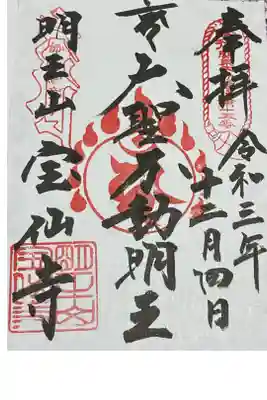 奉拝
令和三年
十二月四日
大聖不動明王
明王山
宝仙寺